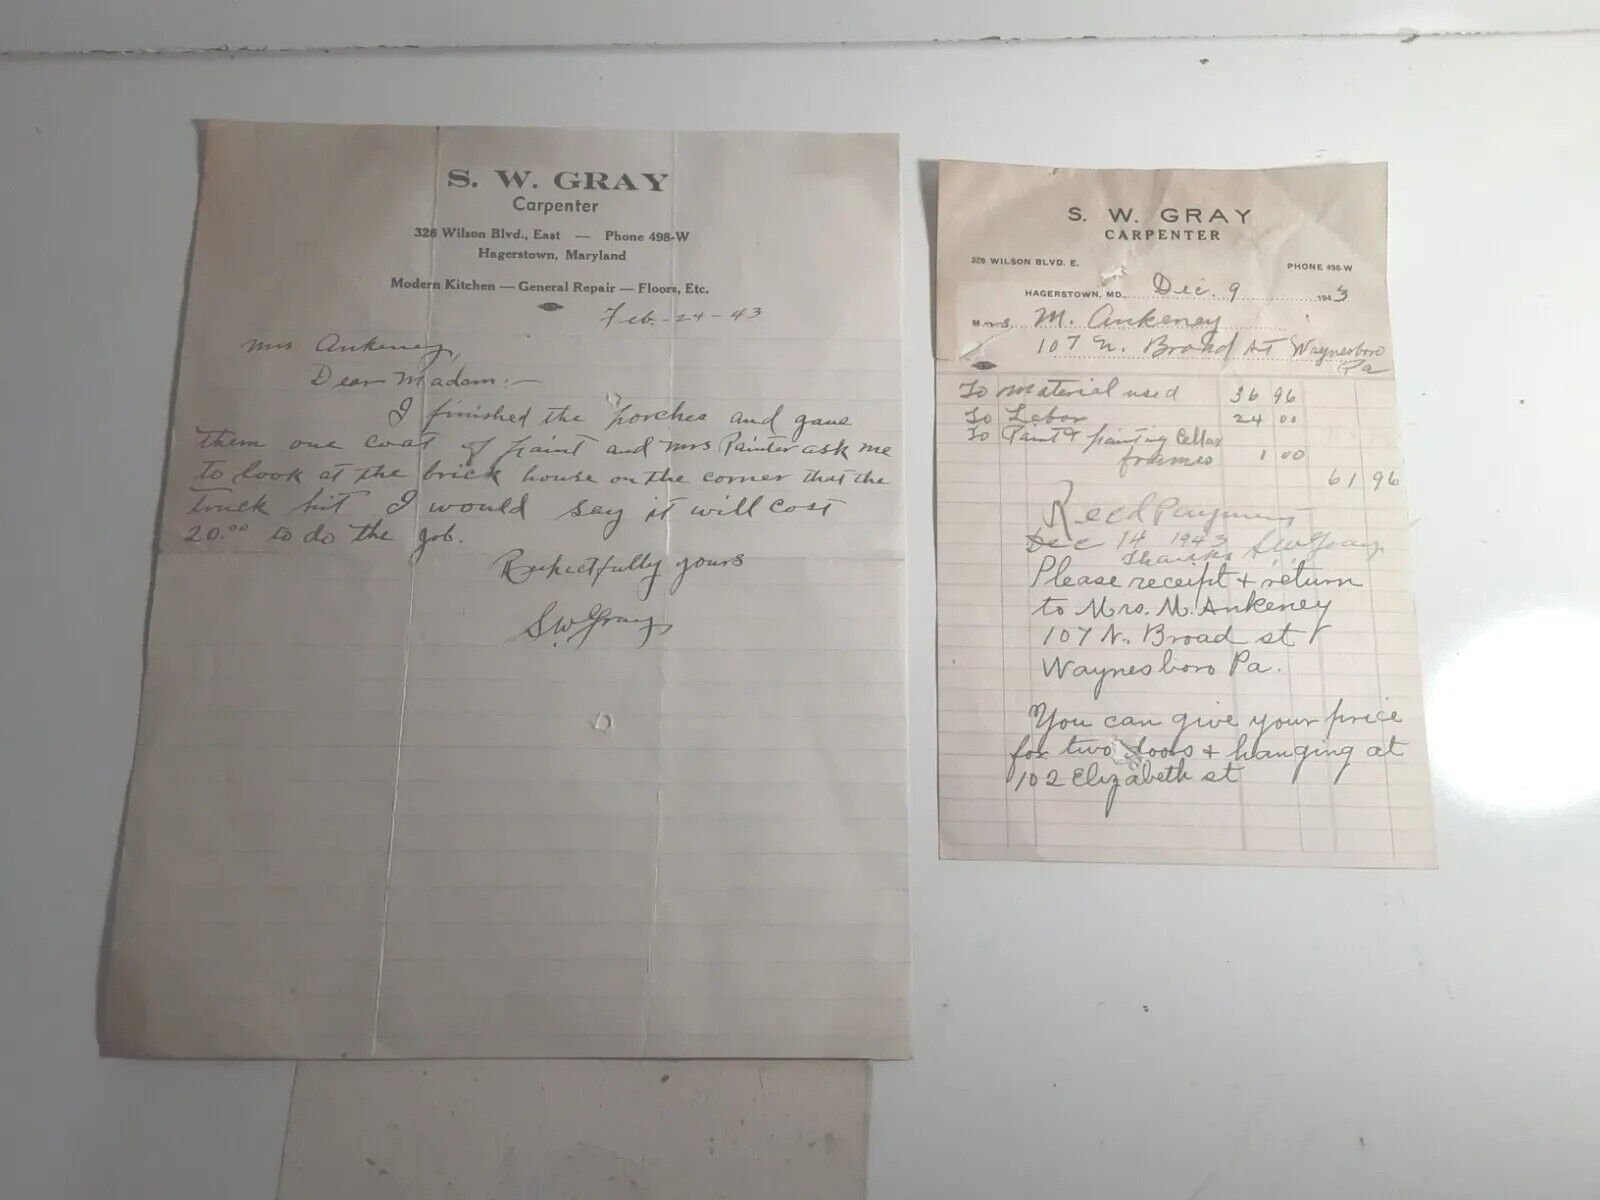 S. W. GRAY
Carpenter
326 Wilson Blvd., East — Phone 498-W
Hagerstown, Maryland
Modern Kitchen — General Repair — Floors, Etc.
Feb-24-43
Mrs Ankeney,
Dear Madam:—
I finished the porches and gave
them one coat of paint and Mrs Painter ask me
to look at the brick house on the corner that the
truck hit I would say it will cost
20.00 to do the job.
Respectfully yours
SW Gray
S. W. GRAY
CARPENTER
326 WILSON BLVD. E.
PHONE 498-W
HAGERSTOWN, MD., Dec. 9 1943
Mrs. M. Ankeney
107 N. Broad St Waynesboro
Pa
To Material used 36 96
To Labor 24 00
To Paint & painting Cellar
frames 1 00
61 96
Recd Payment
Dec 14 1943
Thanks SW Gray
Please receipt + return
to Mrs. M. Ankeney
107 N. Broad st
Waynesboro Pa.
You can give your price
for two doors + hanging at
102 Elizabeth st